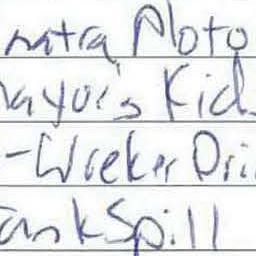 natra Moto
ayor's Kid
-Wreker Dri
ankSpill